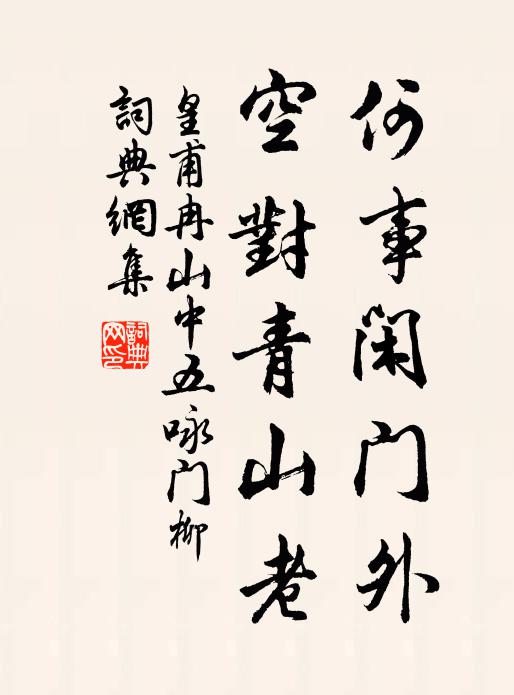 何事閑门外
空對青山老
皇甫冉山中五咏门柳
詞典網集
詞典
网印